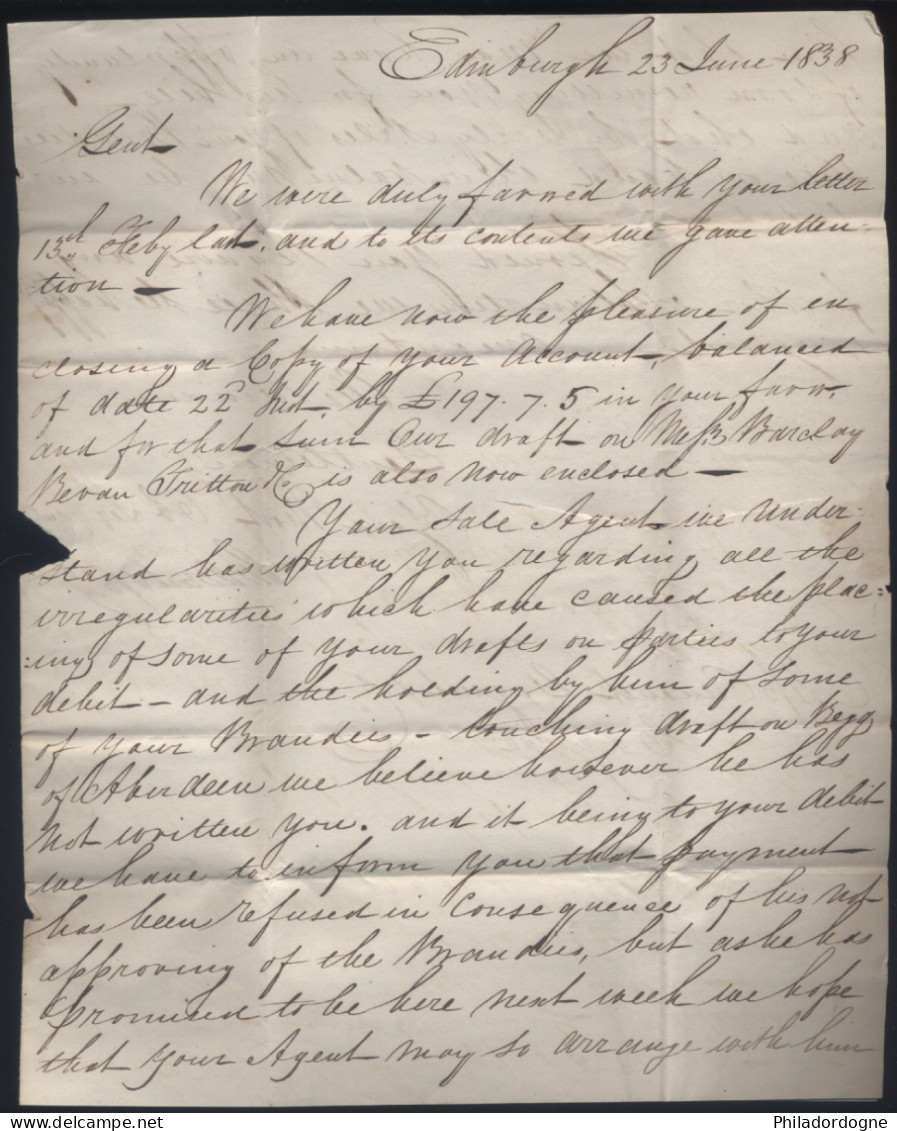 Edinburgh 23 June 1838
Gent
We were duly favored with your letter
13th Feby last, and to its contents we gave atten-
tion —
We have now the pleasure of en
closing a Copy of your Account, balanced
of date 22d Inst, by £197. 7. 5 in your favor,
and for that sum Our draft on Messrs Barclay
Bevan Tritton & Co is also now enclosed —
Your Sale Agent we under-
stand has written you regarding all the
irregularities which have caused the plac=
=ing of some of your drafts on parties to your
debit — and the holding by him of some
of your Brandies — touching draft on Begg
of Aberdeen we believe however he has
not written you. and it being to your debit
we have to inform you that payment
has been refused in consequence of his not
approving of the Brandies, but as he has
promised to be here next week we hope
that your Agent may so arrange with him
delcampe.net
Philadordogne